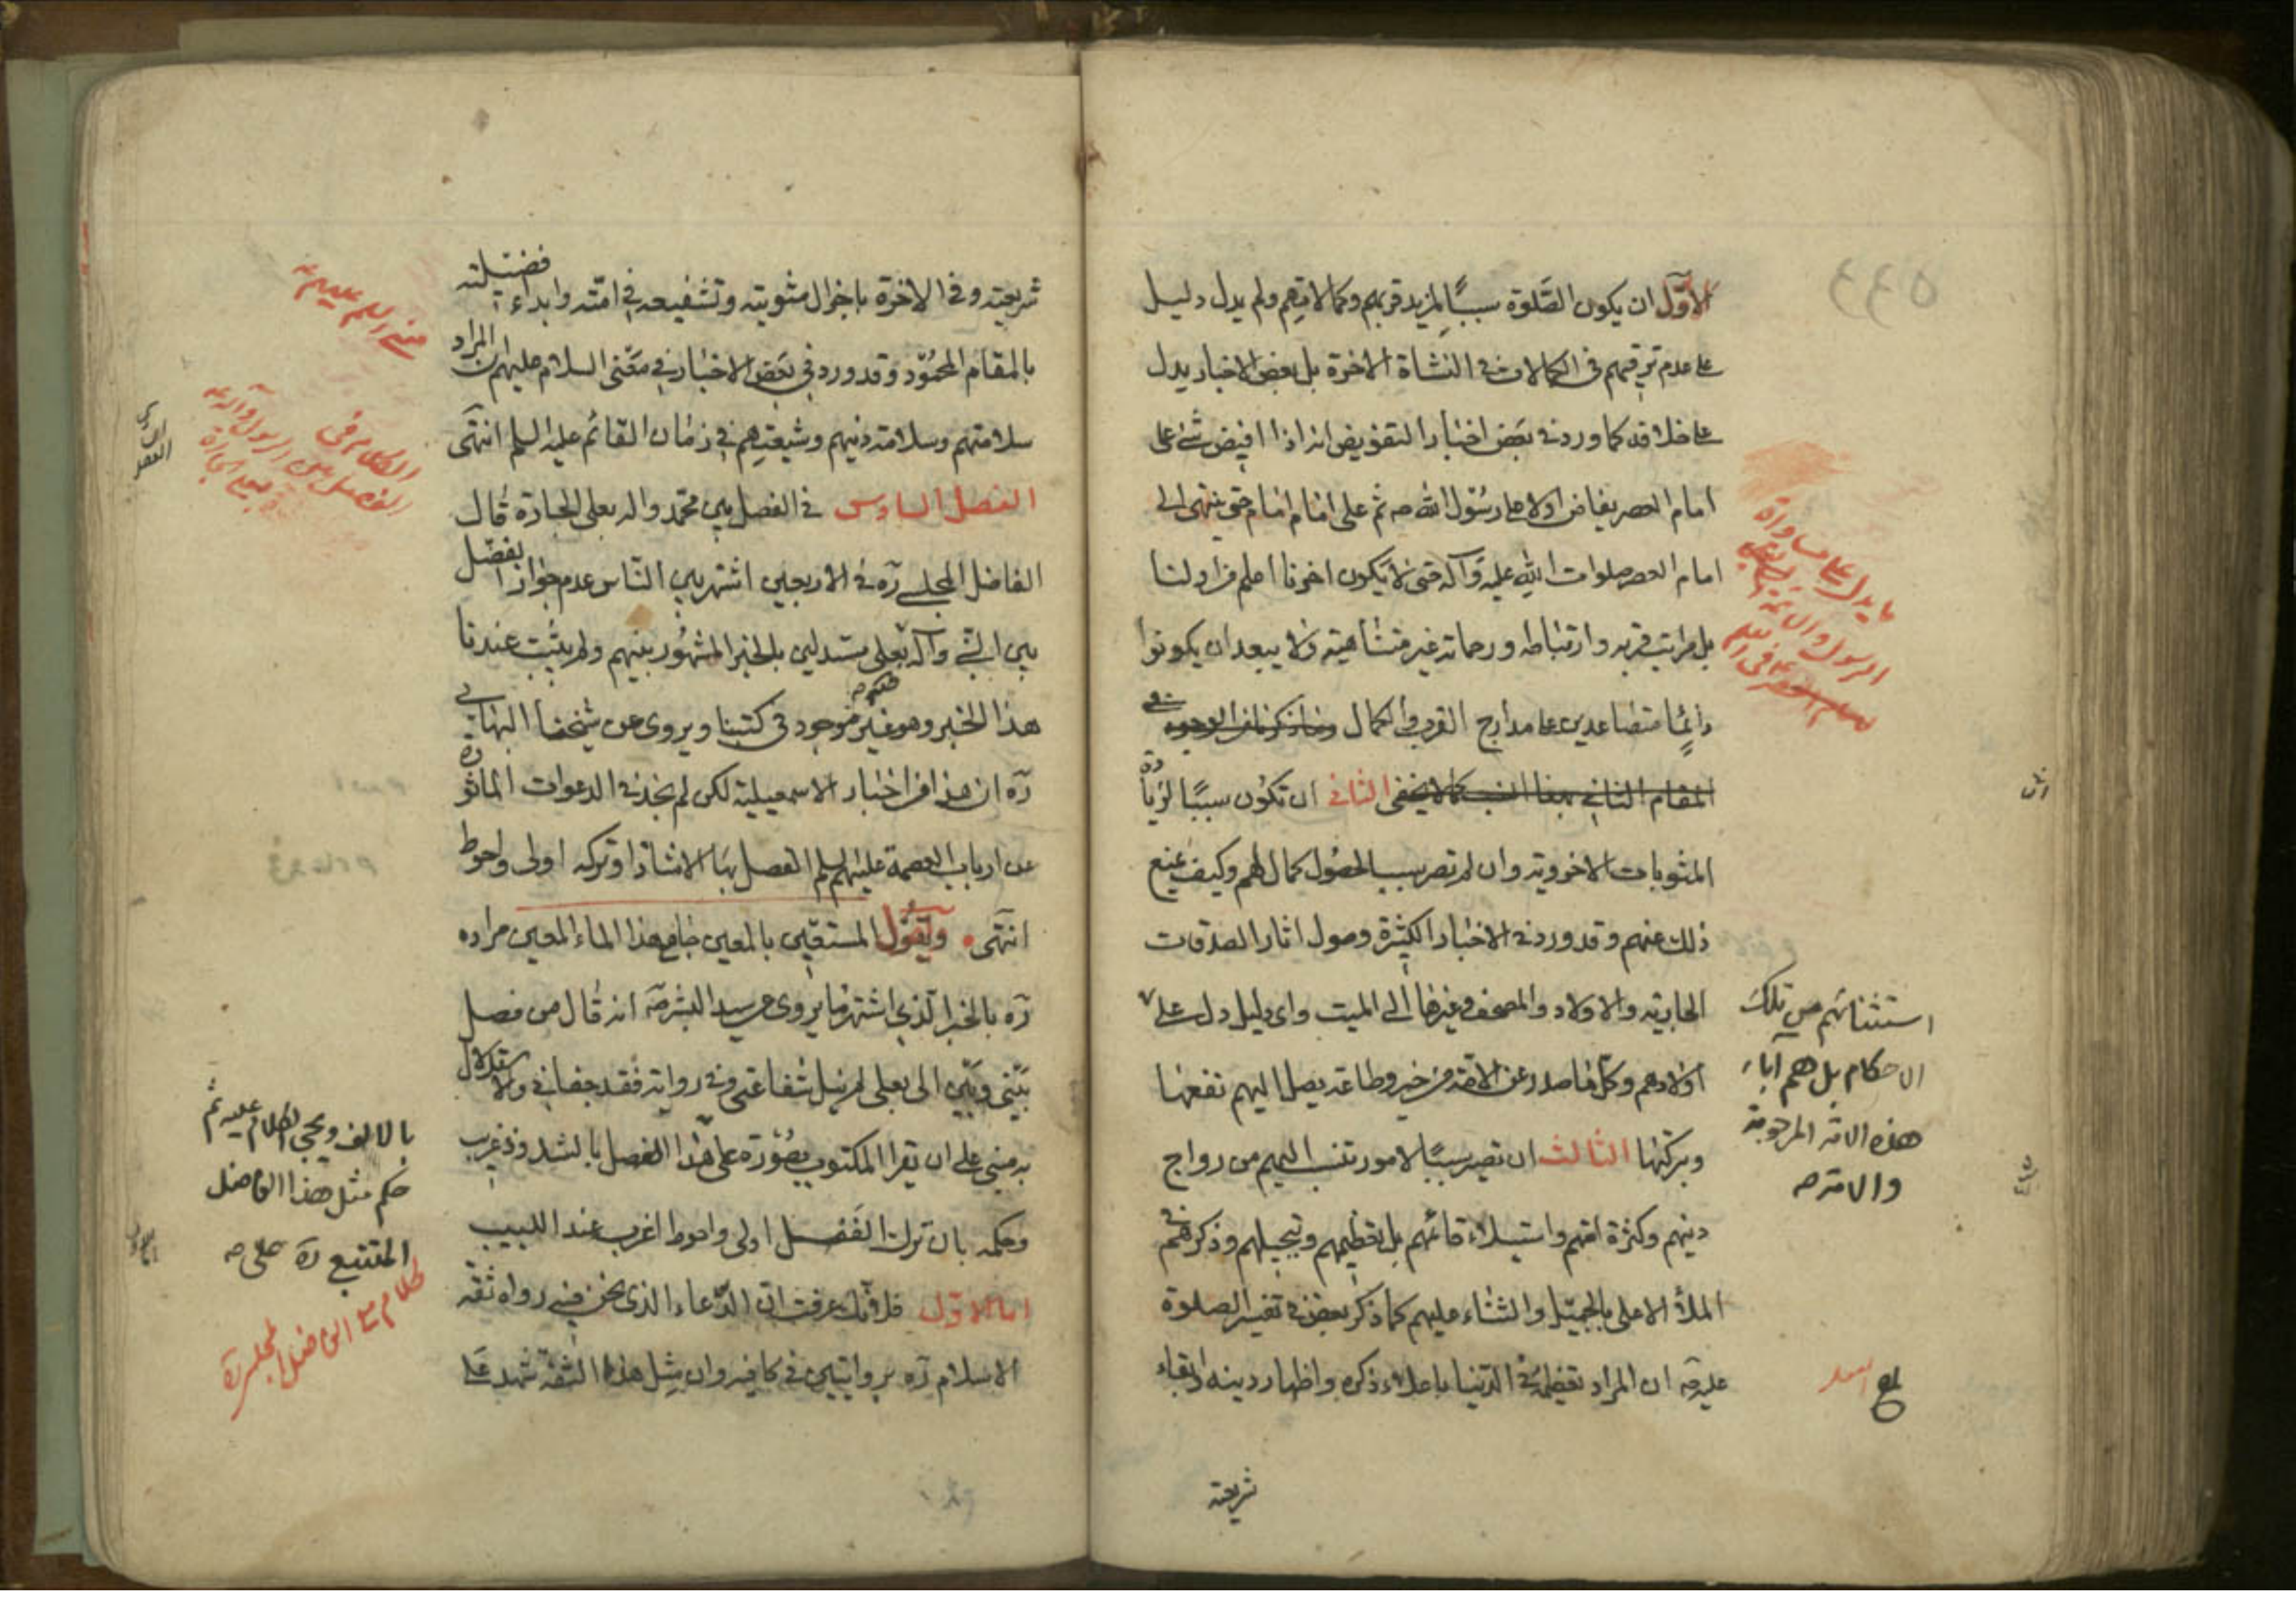 الأوّل ان يكون الصَّلوة سببًا لمزيد قربهم وكمالاتهم ولم يدل دليل
على عدم ترقيهم في الكمالات في النشاة الاخرة بل بعض الاخبار يدل
على خلافه كما ورد في بعض اخبار التفويض انه اذا افيض شئ على
امام العصر يفاض اولا على رسول الله صه ثم على امام امام حتى ينتهى الى
امام العصر صلوات الله عليه وآله حتى لا يكون اخرنا اعلم من اولنا
بل مراتب قربه وارتباطه ورحماته غير متناهية ولا يبعد ان يكونوا
دائمًا متصاعدين على مدارج القرب والكمال
الثاني ان تكون سببًا لزيادة
المثوبات الاخروية وان لم تصر سببا لحصول كمال لهم وكيف يمنع
ذلك عنهم وقد ورد في الاخبار الكثيرة وصول اثار الصدقات
الجارية والاولاد والمصحف وغيرها الى الميت واى دليل دل على
استثنائهم من تلك
الاحكام بل هم آباء
هذه الامة المرحومة
والامة صه
اولادهم وكل ما صدر عن الامة من خير وطاعة يصل اليهم نفعها
وبركتها الثالث ان تصير سببًا لامور تنسب اليهم من رواج
دينهم وكثرة امتهم واستيلاء قائمهم بل تعظيمهم وتبجيلهم وذكرهم في
الملأ الاعلى بالجميل والثناء عليهم كما ذكر بعض في تفسير الصلوة
عليه صه ان المراد تعظيمه في الدنيا باعلاء ذكره واظهار دينه وابقاء
شريعته
ما يدل على مساواة
الرسول والائمة
٤٤٥
شريعته وفي الاخرة باجزال مثوبته وتشفيعه في امته وابداء فضيلته
بالمقام المحمود وقد ورد في بعض الاخبار في معنى السلام عليهم ان المراد
سلامتهم وسلامة دينهم وشيعتهم في زمان القائم عليه السلم انتهى
الفصل السادس في الفصل بين محمد واله بعلى الجارة قال
الفاضل المجلسي ره في الاربعين اشتهر بين الناس عدم جواز الفصل
بين النبي وآله بعلى مستدلين بالخبر المشهور بينهم ولم يثبت عندنا
هذا الخبر وهو غير موجود في كتبنا ويروى عن شيخنا البهائي
ره ان هذا من اخبار الاسمعيلية لكن لم نجد في الدعوات الماثورة
عن ارباب العصمة عليهم السلم الفصل بها الا شاذا وتركه اولى واحوط
انتهى ويقول المستعين بالمعين جامع هذا الماء المعين مراده
ره بالخبر الذي اشتهر ما يروى عن سيد البشر صه انه قال من فصل
بيني وبين الى بعلى لم ينل شفاعتى وفي رواية فقد جفاني والاستدلال
به مبني على ان يقرا المكتوب بصورة على هذا الفصل بالشذوذ غريب
وحكمه بان ترك الفصل اولى واحوط اغرب عند اللبيب
اما الاول فلانك عرفت ان الدعاء الذى نحن فيه رواه ثقة
الاسلام ره بروايتين في كافيه وان مثل هذا الثقة شهد على
معنى السلم عليهم
الكلام في
الفصل بين الرسول وآله
بعلى الجارة
بالالف ويجئ الكلام عليه ثم
حكم مثل هذا الفاضل
المتتبع ره على صه
كلام مع الفاضل المجلسي ره